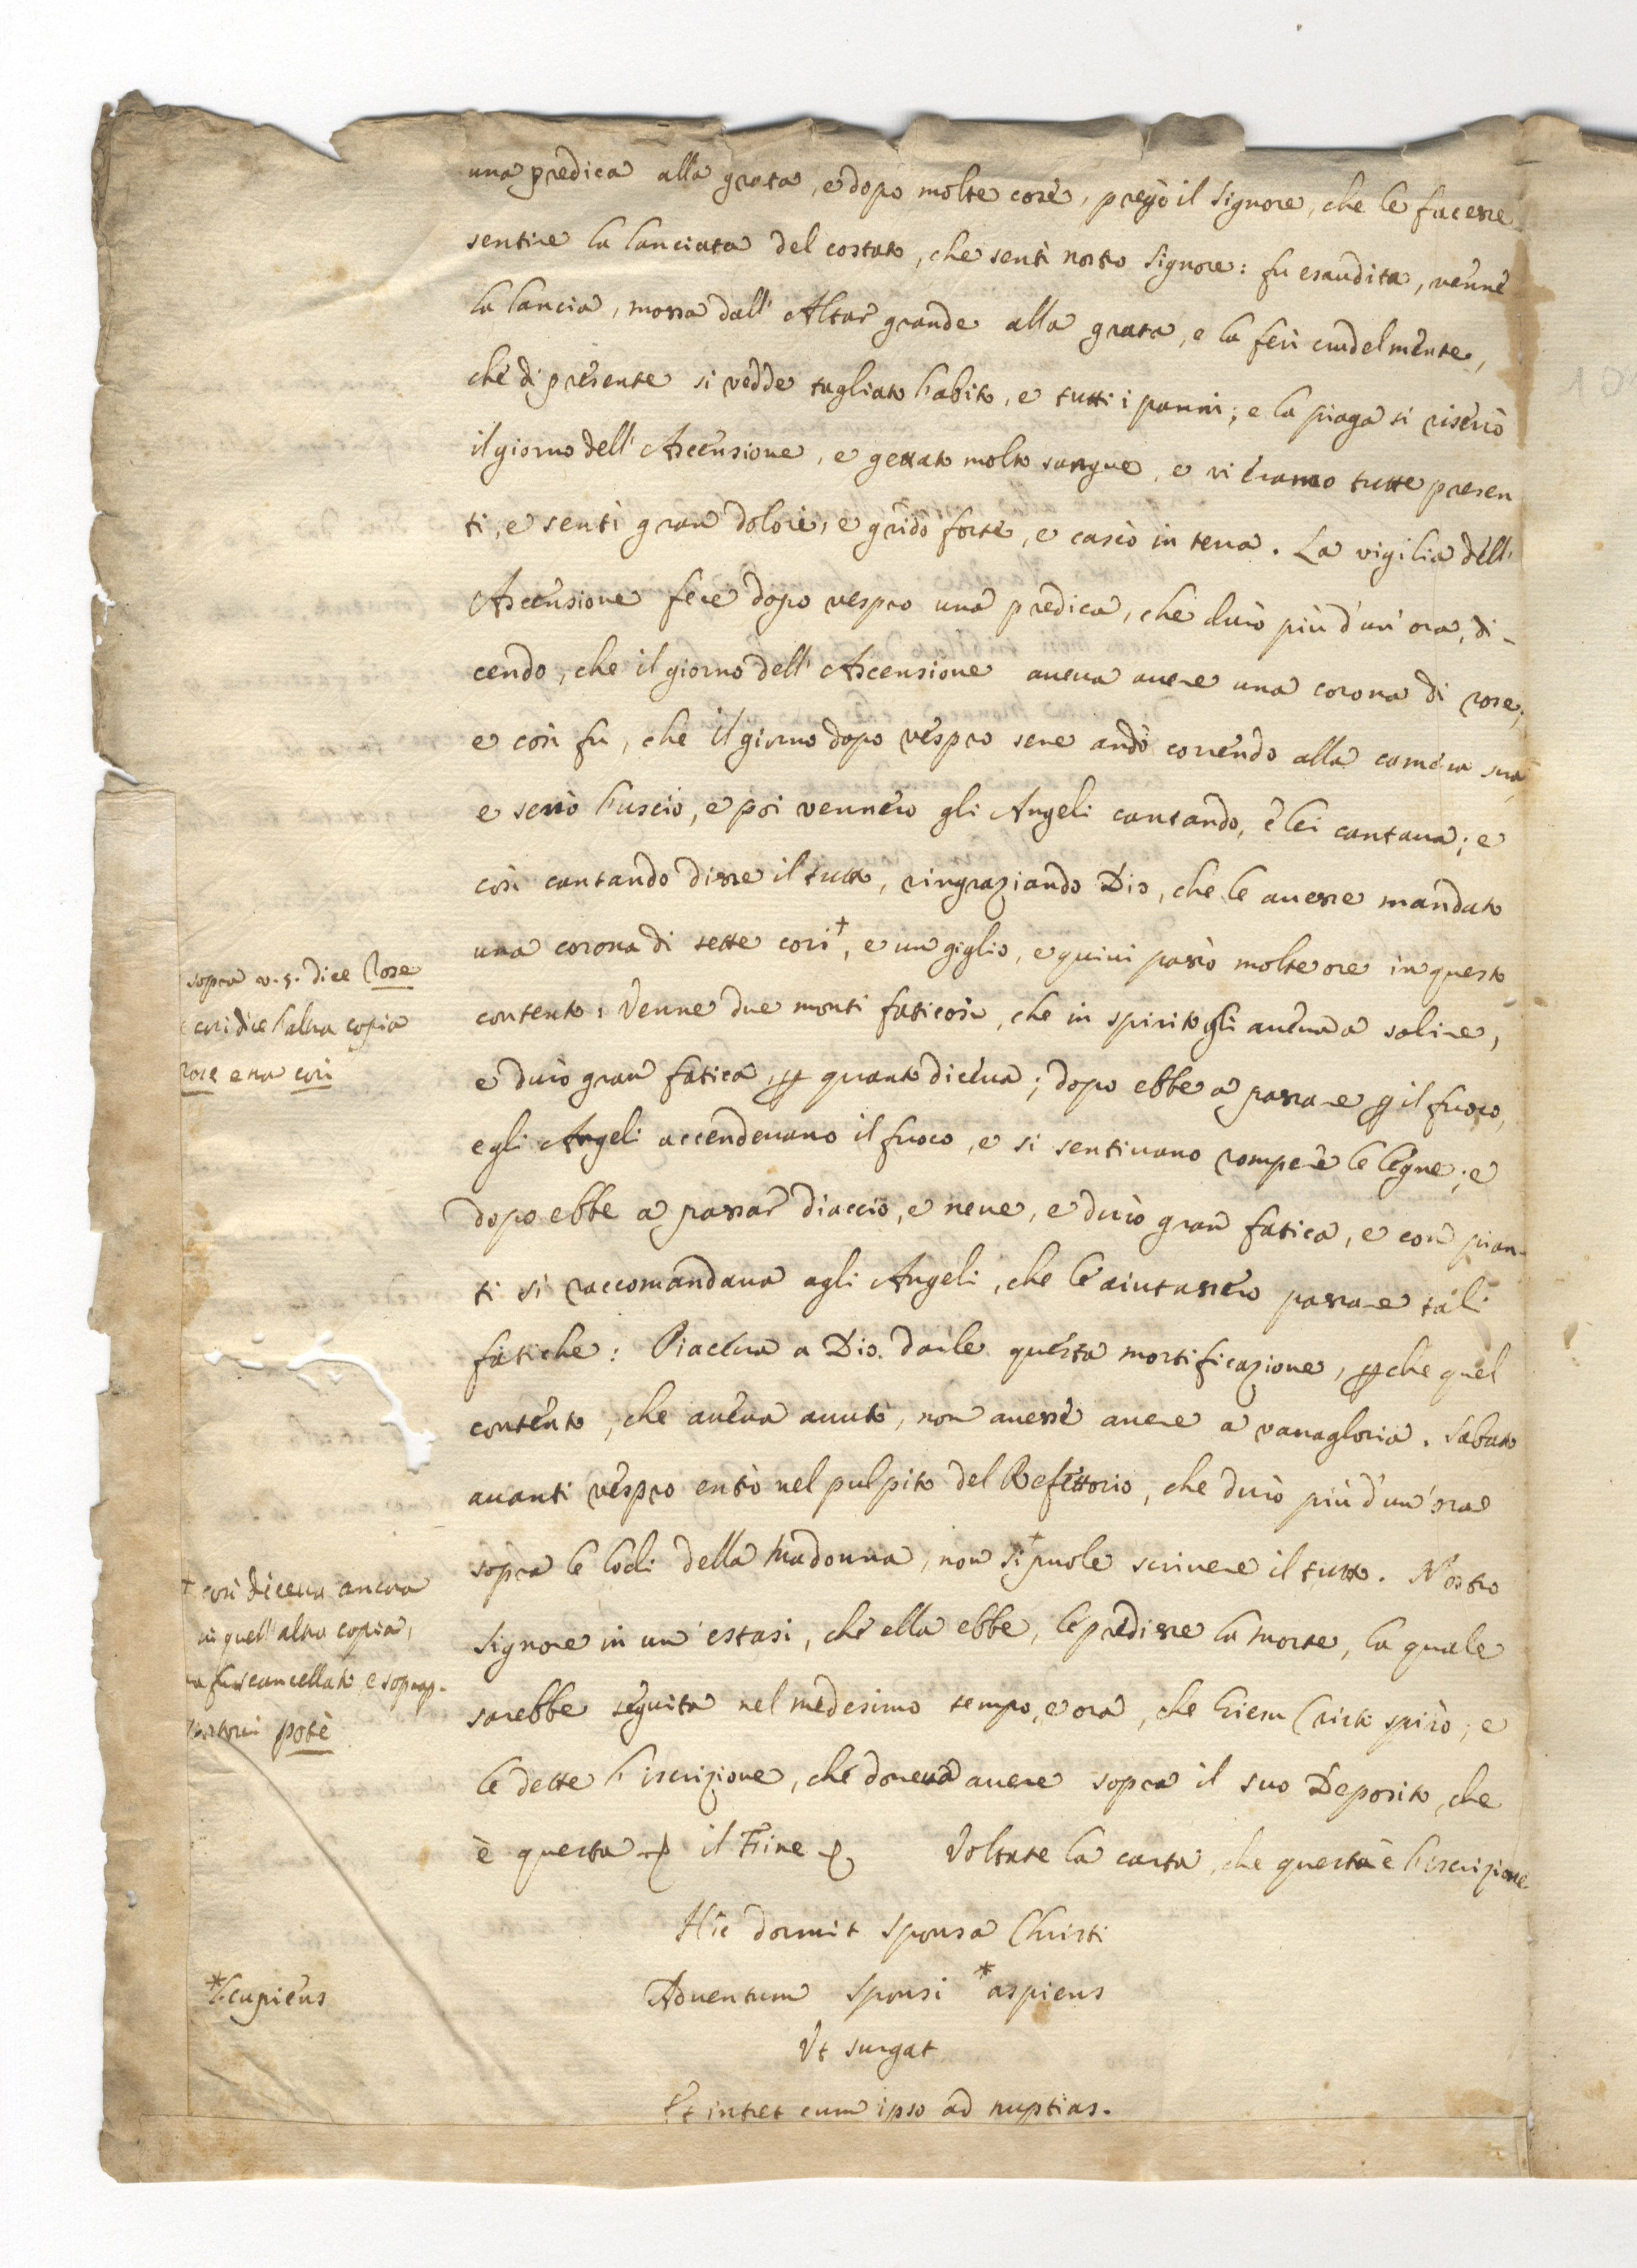 una predica alla grata, e dopo molte cose, pregò il Signore, che le facesse
sentire la lanciata del costato, che sentì nostro Signore: fu esaudita, venne
la lancia, mossa dall' Altar grande alla grata, e la ferì crudelmente,
che di presente si vedde tagliato l'abito, e tutti i panni; e la piaga si riserrò
il giorno dell' Ascensione, e gettato molto sangue, e vi eramo tutte presen
ti, e sentì gran dolore, e gridò forte, e cascò in terra. La vigilia dell'
Ascensione fece dopo vespro una predica, che durò più d'un' ora, di-
cendo, che il giorno dell' Ascensione aueua auere una corona di rose,
e così fu, che il giorno dopo vespro sene andò correndo alla camera sua
e serrò l'uscio, e poi vennero gli Angeli cantando, e lei cantaua; e
così cantando disse il tutto, ringraziando Dio, che le auesse mandato
una corona di sette cori+, e un giglio, e quiui passò molte ore in questo
contento: Venne due monti faticosi, che in spirito gli aueua a salire,
e durò gran fatica, p quanto diceua; dopo ebbe a passare p il fuoco,
e gli Angeli accendeuano il fuoco, e si sentiuano rompere le legne; e
dopo ebbe a passar diaccio, e neue, e durò gran fatica, e con pian-
ti si raccomandaua agli Angeli, che le aiutassero passare tali
fatiche: Piaceua a Dio darle questa mortificazione, pche quel
contento, che aueua auuto, non auesse auere a vanagloria. Sabato
auanti vespro entrò nel pulpito del Refettorio, che durò più d'un' ora
sopra le lodi della Madonna, non si+ puole scriuere il tutto. Nostro
Signore in un' estasi, che ella ebbe, le predisse la morte, la quale
sarebbe seguita nel medesimo tempo, e ora, che Giesu Cristo spirò, e
le dette l'iscrizione, che doueua auere sopra il suo Deposito, che
è questa il Fine Voltate la carta, che questa è l'iscrizione
Hic dormit sponsa Christi
Aduentum sponsi *aspiciens
Vt surgat
Et intret cum ipso ad nuptias.
sopra v. 5. dice Rose
cori dice l'altra copia
Rose e no cori
+ così diceua ancora
in quell' altra copia,
ma fu scancellato, e soprap-
postoui potè
*cupiens